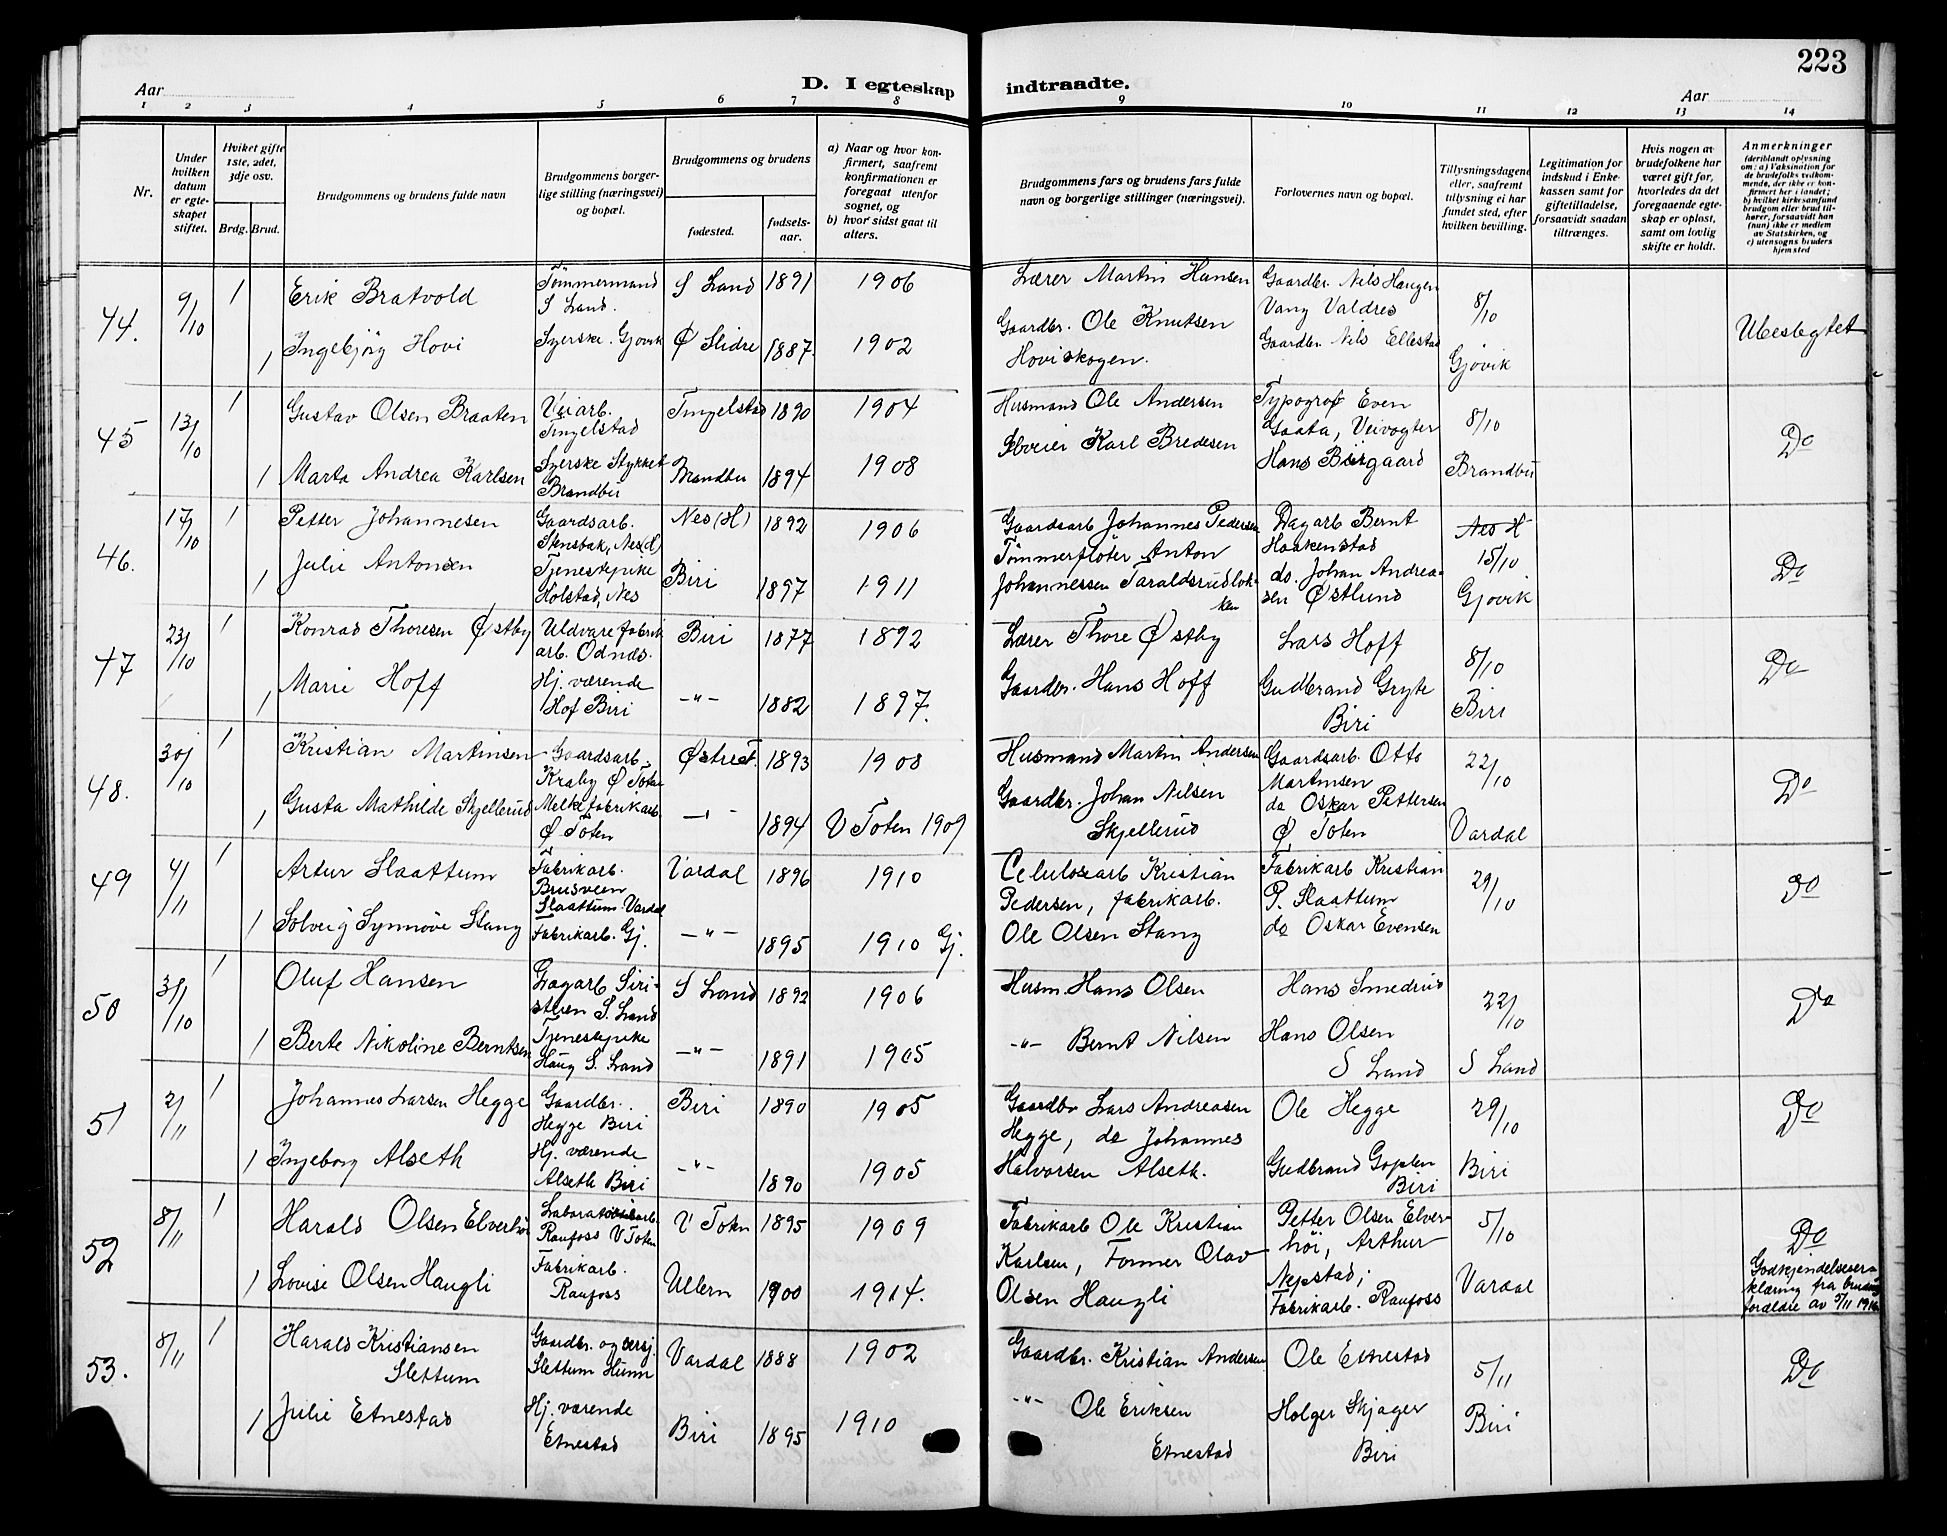 223
D. I egteskap indtraadte.
Aar
Aar
1 2 3 4 5 6 7 8 9 10 11 12 13 14
Nr.
Under hvilken datum er egteskapet stiftet.
Hvilket gifte 1ste, 2det, 3dje osv.
Brdg. Brud.
Brudgommens og brudens fulde navn
Brudgommens borgerlige stilling (næringsvei) og bopæl.
Brudgommens og brudens
fødested.
fødselsaar.
a) Naar og hvor konfirmert, saafremt konfirmationen er foregaat utenfor sognet, og
b) hvor sidst gaat til alters.
Brudgommens fars og brudens fars fulde navn og borgerlige stillinger (næringsvei).
Forlovernes navn og bopæl.
Tillysningsdagene eller, saafremt tillysning ei har fundet sted, efter hvilken bevilling.
Legitimation for indskud i Enkekassen samt for giftetilladelse, forsaavidt saadan tiltrænges.
Hvis nogen av brudefolkene har været gift før, hvorledes da det foregaaende egteskap er opløst, samt om lovlig skifte er holdt.
Anmerkninger
(deriblandt oplysning om: a) Vaksination for de brudefolks vedkommende, der ikke er konfirmert her i landet; b) hvilket kirkesamfund brudgom eller brud tilhører, forsaavidt han (hun) ikke er medlem av Statskirken, og c) utensogns bruders hjemsted
44. 9/10 1 Erik Bratvold Tømmermand S Land. S Land 1891 1906 Lærer Martin Hansen Gaardbr. Nils Haugen Vang Valdres 8/10 Ubeslegtet
1 Ingebjörg Hovi Syerske. Gjøvik Ø Slidre 1887. 1902 Gaardbr. Ole Knutsen Hoviskogen. Gaardbr. Nils Ellestad Gjøvik
45 13/10 1 Gustav Olsen Braaten Veiarb. Tingelstad Tingelstad 1890 1904 Husmand Ole Andersen Typograf Even Gaata, Veivogter 8/10 Do
1 Marta Andrea Karlsen Syerske Stykket Brandbu Brandbu 1894 1908 Karl Bredesen Hans Brandbu
46. 17/10 1 Petter Johannesen Gaardsarb. Stensbak, Nes (H) Nes (H) 1892 1906 Gaardsarb Johannes Pedersen Dagarb Bernt Haakenstad Nes H 15/10 Do
1 Julie Antonsen Tjenestepike Holstad, Nes Biri 1897 1911 Tömmerflöter Anton Johannessen Taraldsrudlokken do. Johan Andreasen Østlund Gjøvik
47 23/10 1 Konrad Thoresen Østby Uldvarefabrik arb. Odnes. Biri 1877 1892 Lærer Thore Østby Lars Hoff 8/10 Do
1 Marie Hoff Hj. værende Hof Biri -"- 1882 1897. Gaardbr. Hans Hoff Gudbrand Gryte Biri Biri
48. 30/10 1 Kristian Martinsen Gaardsarb. Kraby Ø Toten Østre T. 1893 1908 Husmand Martin Andersen Gaardsarb. Otto Martinsen 22/10 Do
1 Gusta Mathilde Skjellerud Melkefabrikarb. Ø Toten -"- 1894 V Toten 1909 Gaardbr. Johan Nilsen Skjellerud do Oskar Pettersen Ø Toten Vardal
49 4/11 1 Artur Slaattum Fabrikarb. Brusveen Slaattum. Vardal Vardal 1896 1910 Celulosearb Kristian Pedersen, fabrikarb. Fabrikarb Kristian P. Slaattum 29/10 Do
1 Solveig Synnöve Stang Fabrikarb. Gj. -"- 1895 1910 Gj. Ole Olsen Stang do Oskar Evensen
50 31/10 1 Oluf Hansen Dagarb S. Land S Land 1892 1906 Husm. Hans Olsen Hans Smedrud 22/10 Do
1 Berte Nikoline Berntsen Tjenestepike Haug S. Land -"- 1891 1905 -"- Bernt Nilsen Hans Olsen S Land S Land
51 2/11 1 Johannes Larsen Hegge Gaardbr. Hegge Biri Biri 1890 1905 Gaardbr Lars Andreasen Hegge, do Johannes Ole Hegge 29/10 Do
1 Ingeborg Alseth Hj. værende Alseth Biri -"- 1890 1905 Halvorsen Alseth. Gudbrand Goplen Biri Biri
52 8/11 1 Harald Olsen Elverhöi Laboratoriearb. Raufoss V Toten V Toten 1895 1909 Fabrikarb Ole Kristian Karlsen, Former Olav Petter Olsen Elverhöi, Arthur 5/10 Do
1 Lovise Olsen Haugli Fabrikarb. Raufoss Ullern 1900 1914. Olsen Haugli Nepstad; Fabrikarb. Raufoss Vardal Godkjendelseserklæring fra brudens forældre av 5/11 1916
53. 8/11 1 Harald Kristiansen Slettum Gaardbr. og Slettum Hunn Vardal 1888 1902 Gaardbr. Kristian Andersen Ole Etnestad 5/11 Do
1 Julie Etnestad Hj. værende Etnestad Biri 1895 1910 -"- Ole Eriksen Etnestad Holger Skjager Biri Biri